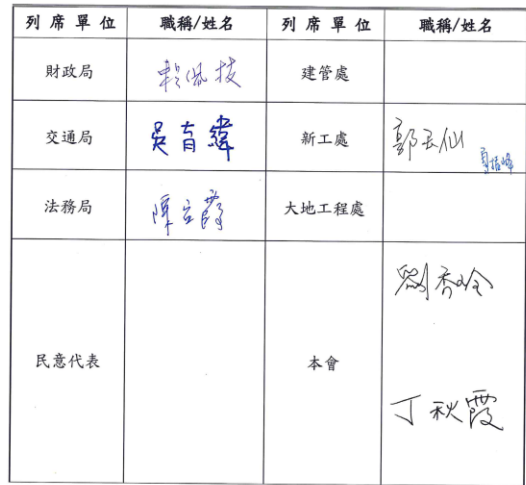 列席單位 職稱/姓名 列席單位 職稱/姓名
財政局 賴佩技 建管處
交通局 吳育緯 新工處 郭玉仙
法務局 陳立 大地工程處
民意代表 本會 劉秀玲
丁秋霞